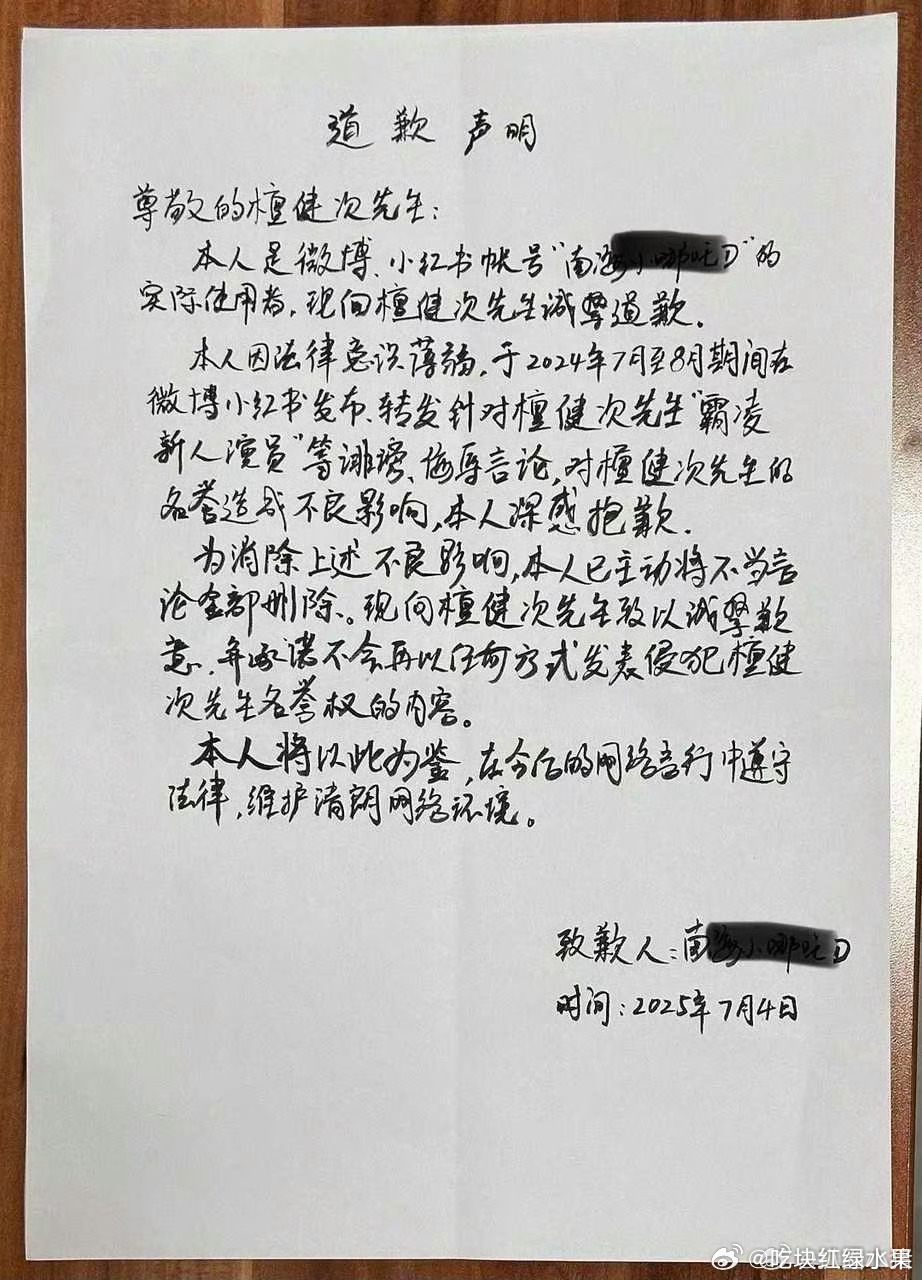 道歉声明
尊敬的檀健次先生：
本人是微博、小红书帐号“南 D”的
实际使用者，现向檀健次先生诚挚道歉。
本人因法律意识薄弱，于2024年7月至8月期间在
微博小红书发布、转发针对檀健次先生“霸凌
新人演员”等诽谤、侮辱言论，对檀健次先生的
名誉造成不良影响，本人深感抱歉．
为消除上述不良影响，本人已主动将不当言
论全部删除、。现向檀健次先生致以诚挚歉
意、并承诺不会再以任何方式发表侵犯檀健
次先生名誉权的内容。
本人将以此为鉴，在今后的网络言行中遵守
法律，维护清朗网络环境。
致歉人：南 D
时间：2025年7月4日
@吃块红绿水果